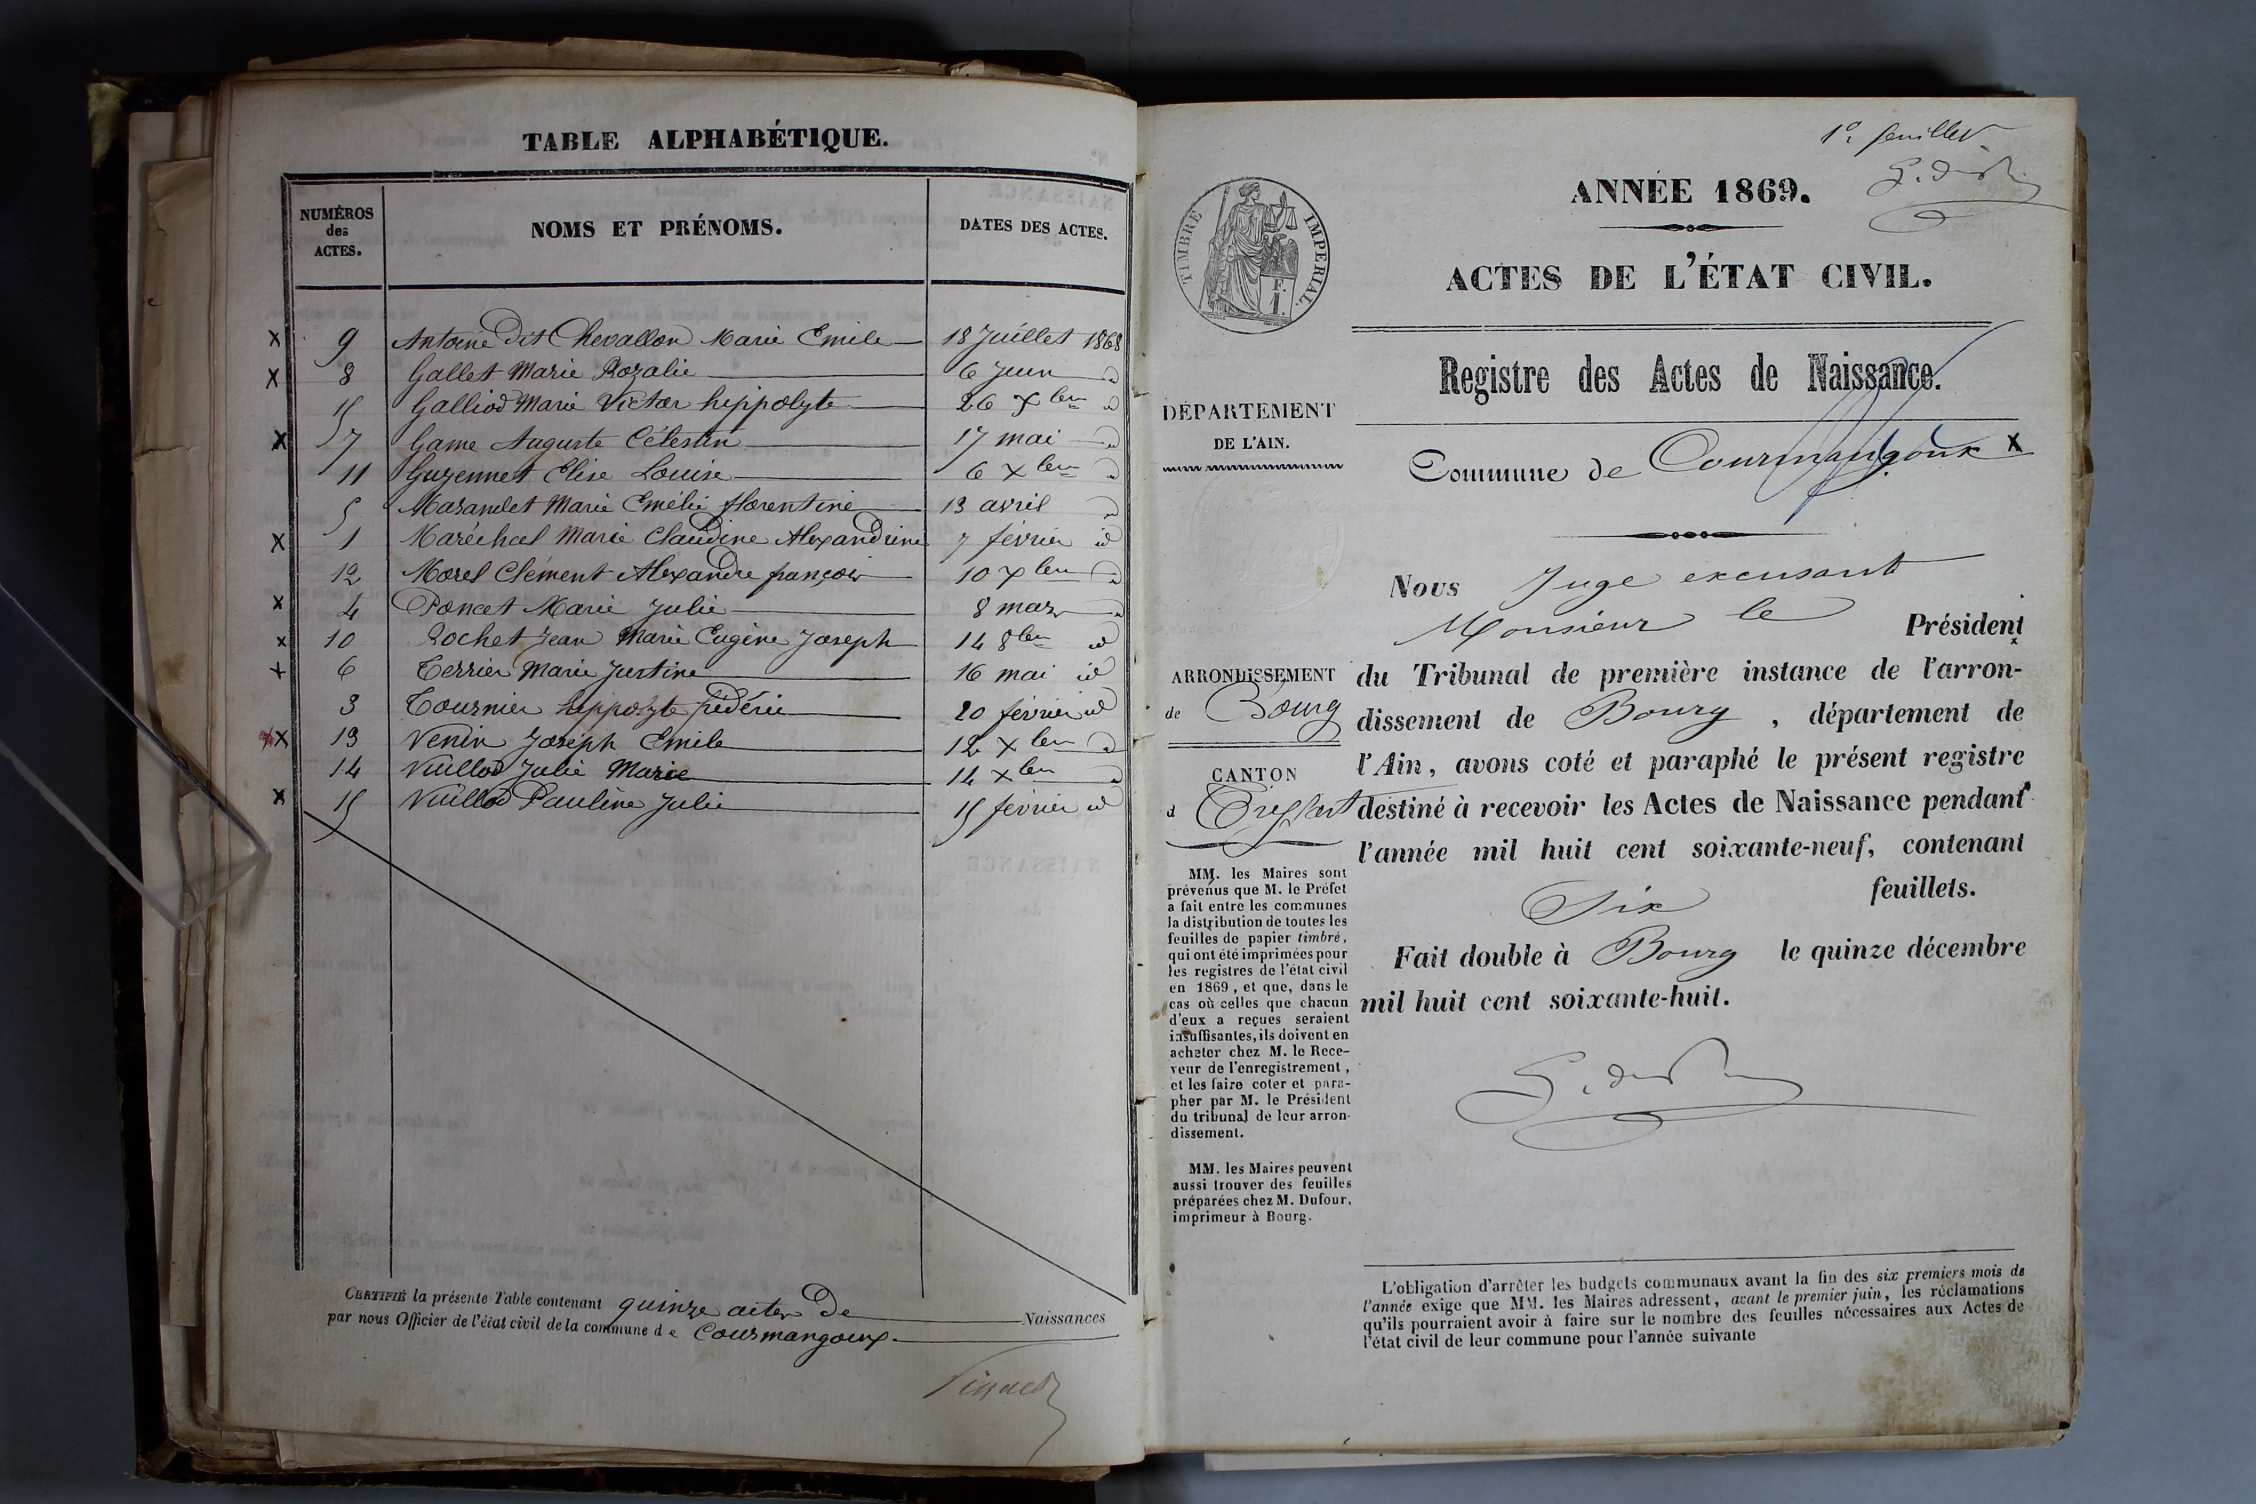 TABLE ALPHABÉTIQUE.
NUMÉROS des ACTES.
NOMS ET PRÉNOMS.
DATES DES ACTES.
x 9 Antoine dit Chevallon Marie Emile 18 Juillet 1868
x 8 Gallet Marie Rozalie 6 Juin id
15 Galliod Marie Victor hippolyte 26 Xbre id
x 7 Game Auguste Célestin 17 mai id
11 Guyennet Elise Louise 6 Xbre id
5 Marandet Marie Emélie florentine 13 avril id
x 1 Maréchal Marie Claudine Alexandrine 7 février id
12 Morel Clément Alexandre françois 10 Xbre id
x 4 Poncet Marie Julie 8 mars id
x 10 Rochet Jean Marie Eugène Joseph 14 8bre id
x 6 Terrier Marie Justine 16 mai id
3 Tournier hippolyte frédéric 20 février id
x 13 Venin Joseph Emile 12 Xbre id
14 Vuillod Julie Marie 14 Xbre id
x 15 Vuillod Pauline Julie 15 février id
CERTIFIÉ la présente Table contenant quinze actes de Naissances
par nous Officier de l'état civil de la commune de Courmangoux
1er feuillet
ANNÉE 1869.
ACTES DE L'ÉTAT CIVIL.
TIMBRE IMPERIAL.
Registre des Actes de Naissance.
Commune de Courmangoux x
DÉPARTEMENT
DE L'AIN.
ARRONDISSEMENT
de Bourg
CANTON
d Treffort
MM. les Maires sont
prévenus que M. le Préfet
a fait entre les communes
la distribution de toutes les
feuilles de papier timbré,
qui ont été imprimées pour
les registres de l'état civil
en 1869, et que, dans le
cas où celles que chacun
d'eux a reçues seraient
insuffisantes, ils doivent en
acheter chez M. le Rece-
veur de l'enregistrement,
et les faire coter et para-
pher par M. le Président
du tribunal de leur arron-
dissement.
MM. les Maires peuvent
aussi trouver des feuilles
préparées chez M. Dufour,
imprimeur à Bourg.
Nous Juge excusant
Monsieur le Président
du Tribunal de première instance de l'arron-
dissement de Bourg, département de
l'Ain, avons coté et paraphé le présent registre
destiné à recevoir les Actes de Naissance pendant
l'année mil huit cent soixante-neuf, contenant
Six feuillets.
Fait double à Bourg le quinze décembre
mil huit cent soixante-huit.
L'obligation d'arrêter les budgets communaux avant la fin des six premiers mois de
l'année exige que MM. les Maires adressent, avant le premier juin, les réclamations
qu'ils pourraient avoir à faire sur le nombre des feuilles nécessaires aux Actes de
l'état civil de leur commune pour l'année suivante